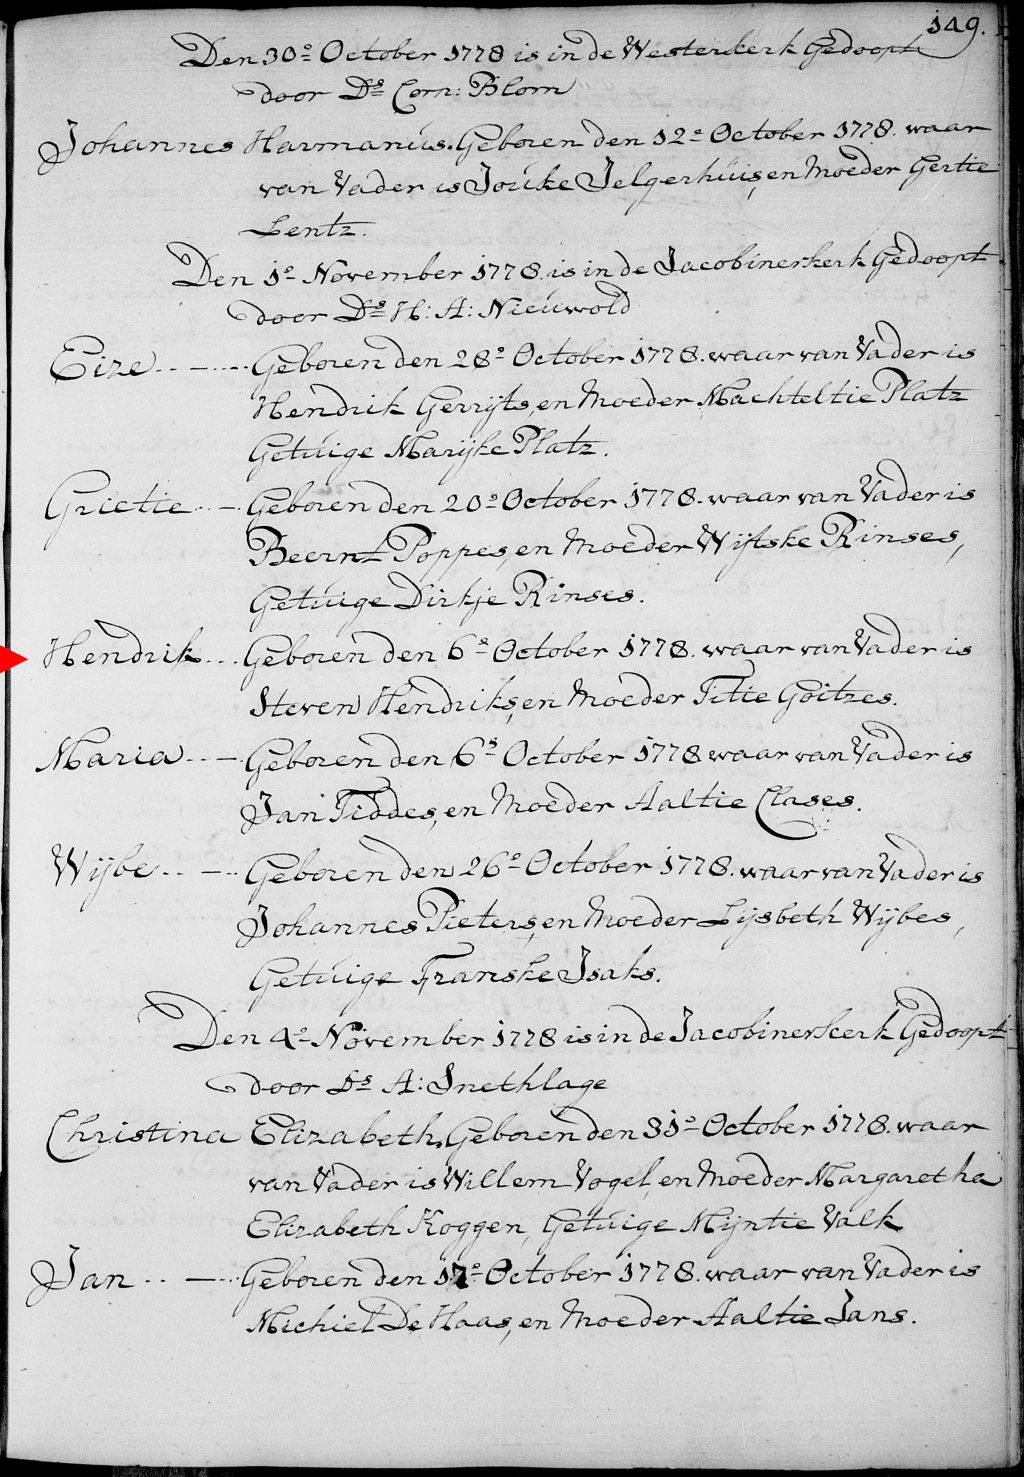 149.
Den 30e October 1778 is in de Westerkerk Gedoopt
door Ds Corn: Blom
Johannes Harmanus. Geboren den 12e October 1778. waar
van Vader is Jouke Jelgerhuis, en Moeder Gertie
Lentz.
Den 1e November 1778. is in de Jacobinerkerk Gedoopt
door Ds H: A: Nieuwold
Eize ..-... Geboren den 28e October 1778. waar van Vader is
Hendrik Gerrijts, en Moeder Machteltie Platz
Getuige Marijke Platz.
Grietie ..- Geboren den 20e October 1778. waar van Vader is
Beernt Poppes, en Moeder Wijtske Rinses,
Getuige Dirkje Rinses.
Hendrik... Geboren den 6e October 1778. waar van Vader is
Steven Hendriks, en Moeder Titie Goitzes.
Maria ..- Geboren den 6e October 1778 waar van Vader is
Jan Tiddes, en Moeder Aaltie Clases.
Wijbe ..-.. Geboren den 26e October 1778. waar van Vader is
Johannes Pieters, en Moeder Lijsbeth Wijbes,
Getuige Franske Isaks.
Den 4e November 1778 is in de Jacobinerkerk Gedoopt
door Ds A: Snethlage
Christina Elizabeth. Geboren den 31e October 1778. waar
van Vader is Willem Vogel, en Moeder Margaretha
Elizabeth Koggen, Getuige Mijntie Valk
Jan ..-... Geboren den 17e October 1778. waar van Vader is
Michiel De Haas, en Moeder Aaltie Jans.